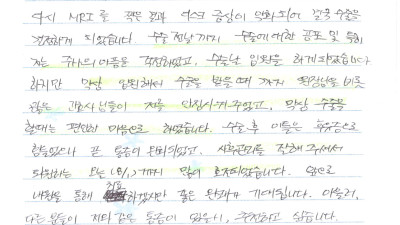 다시 MRI를 찍은 결과 디스크 증상이 악화되어 결국 수술을
결정하게 되었습니다. 수술 전날까지 수술에 대한 공포 및 두려움
저는 주사의 아픔을 걱정하였고, 수술날 입원을 하게 되었습니다
하지만 막상 입원해서 수술을 받을 때 까지 원장님을 비롯
많은 간호사님들이 저를 안심시켜 주었고, 막상 수술을
할때는 편안한 마음으로 하였습니다. 수술 후 이틀은 후유증으로
힘들었으나 곧 통증이 완화되었고, 사후관리를 잘해 주어서
퇴원하는 오늘 까지 많이 호전되었습니다. 앞으로
내원을 통해 치료 하겠지만 좋은 결과가 기대됩니다. 아울러,
다른 분들이 저와 같은 통증이 있을시, 추천하고 싶습니다.